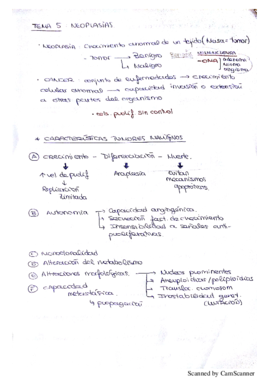 TEMA 5: NEOPLASIAS
· Neoplasia: crecimiento anormal de un tejido (Masa = tumor)
- Tumor → Benigno
→ Maligno
· CANCER: conjunto de enfermedades → crecimiento
celular anormal → capacidad invasión o extensión
a otras partes del organismo
· cels. prolif sin control
* CARACTERÍSTICAS TUMORES MALIGNOS
A) CRECIMIENTO - Diferenciación - Muerte.
↑ vel de prolif Anaplasia Evitan
mecanismos
apoptóticos
Replicación
ilimitada
B) Autonomía → Capacidad angiogénica.
→ Secreción fact. de crecimiento
→ Insensibilidad a señales anti-
proliferativas.
C) Monoclonalidad
D) Alteración del metabolismo
E) Alteraciones morfológicas → Núcleos prominentes
→ Aneuploidías/poliploidías
→ Transloc. cromosom
→ Inestabilidad genét.
F) Capacidad
metastásica
Scanned by CamScanner